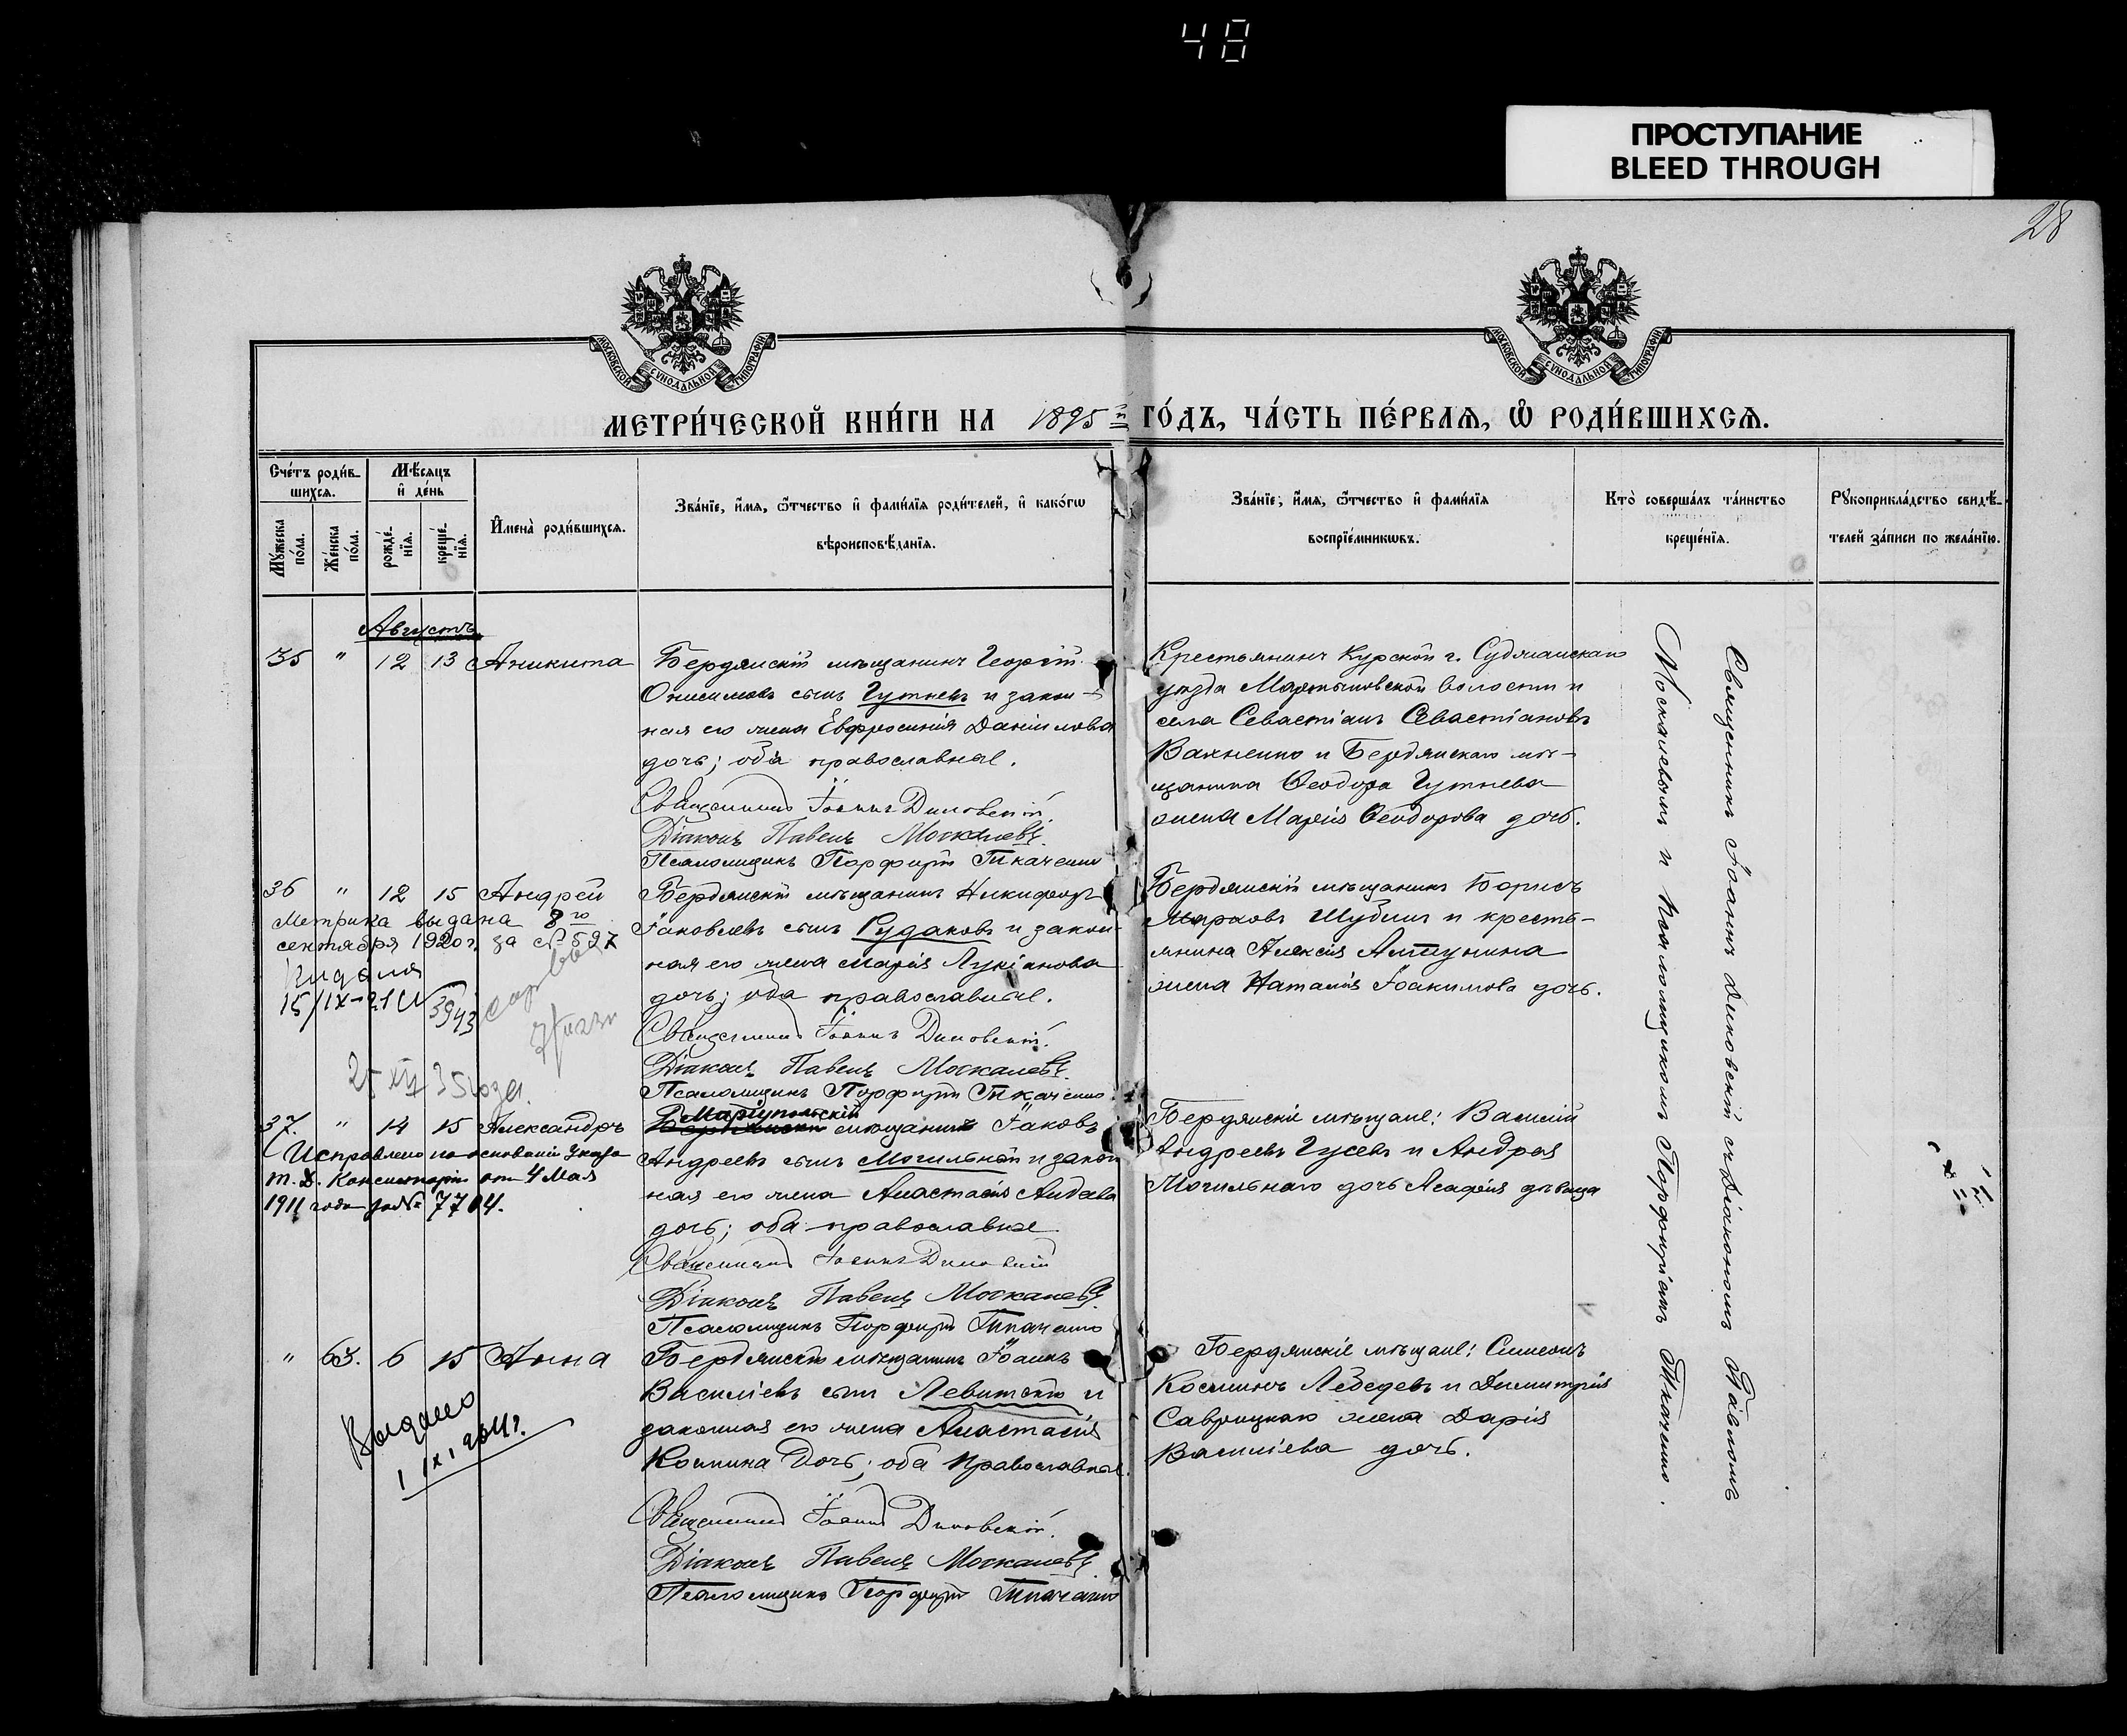 48
ПРОСТУПАНИЕ
BLEED THROUGH
28
МОСКОВСКОЙ СѴНОДАЛЬНОЙ ТИПОГРАФІИ
МОСКОВСКОЙ СѴНОДАЛЬНОЙ ТИПОГРАФІИ
МЕТРИ́ЧЕСКОЙ КНИ́ГИ НА 1895 й ГО́ДЪ, ЧА́СТЬ ПЕ́РВАѦ, Ѡ҆ РОДИ́ВШИХСѦ.
Сче́тъ роди́в-
шихсѧ.
Мꙋ́жеска по́ла.
Же́нска по́ла.
Мѣ́сѧцъ
и҆ де́нь
рожде́-
нїѧ.
креще́-
нїѧ.
И҆мена̀ роди́вшихсѧ.
Зва́нїе, и҆́мѧ, ѻ҆́тчество и҆ фами́лїѧ роди́телей, и҆ како́гѡ
вѣроисповѣ́данїѧ.
Зва́нїе, и҆́мѧ, ѻ҆́тчество и҆ фами́лїѧ
воспрїе́мникѡвъ.
Кто̀ соверша́лъ та́инство
креще́нїѧ.
Рꙋкоприкла́дство свидѣ́-
телей за́писи по жела́нїю.
Августъ
35 " 12 13 Аникита
Бердянскій мѣщанинъ Георгій
Онисимовъ сынъ Гутневъ и закон-
ная его жена Евфросинія Даніилова
дочь; оба православные.
Священникъ Іоаннъ Диковскій.
Діаконъ Павелъ Москалевъ.
Псаломщикъ Порфирій Ткаченко
Крестьянинъ Курской г. Суджанскаго
уѣзда Мартыновской волости и
села Севастіанъ Севастіановъ
Важненко и Бердянскаго мѣ-
щанина Ѳеодора Гутнева
жена Марія Ѳеодорова дочь.
36 " 12 15 Андрей
Метрика выдана 8го
сентября 1920 г. за № 527
15/IX-21
3943
Бердянскій мѣщанинъ Никифоръ
Іаковлевъ сынъ Рудаковъ и закон-
ная его жена Марія Лукіанова
дочь; оба православные.
Священникъ Іоаннъ Диковскій.
Діаконъ Павелъ Москалевъ.
Псаломщикъ Порфирій Ткаченко.
Бердянскій мѣщанинъ Борисъ
Марковъ Шубинъ и кресть-
янина Алексія
жена Наталія Іоакимова дочь.
37. " 14 15 Александръ
Исправлено на основаніи Указа
Т. Д. Консисторіи отъ 4 Мая
1911 года за № 7704.
Маріупольскій
Бердянскій мѣщанинъ Іаковъ
Андреевъ сынъ Могильной и закон
ная его жена Анастасія
дочь; оба православные
Священникъ Іоаннъ Диковскій
Діаконъ Павелъ Москалевъ.
Псаломщикъ Порфирій Ткаченко
Бердянскіе мѣщане: Василій
Андреевъ Гусевъ и Андрея
Могильнаго дочь Агафія дѣвица
" 63. 6 15 Анна
Выдано
Бердянскій мѣщанинъ Іоаннъ
Василіевъ сынъ Левитскій и
законная его жена Анастасія
Космина дочь; оба православные.
Священникъ Іоаннъ Диковскій.
Діаконъ Павелъ Москалевъ.
Псаломщикъ Порфирій Ткаченко
Бердянскіе мѣщане: Симеонъ
Косминъ Лебедевъ и Димитрія
Саврицкаго жена Дарія
Василіева дочь.
Священникъ Іоаннъ Диковскій съ Діакономъ Павломъ
Москалевымъ и псаломщикомъ Порфиріемъ Ткаченко.